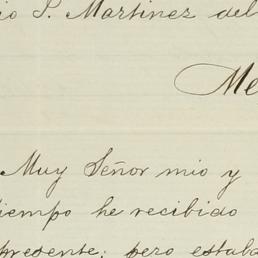 io P. Martinez del
Me
Muy Señor mio y
iempo he recibido
presente; pero estaba